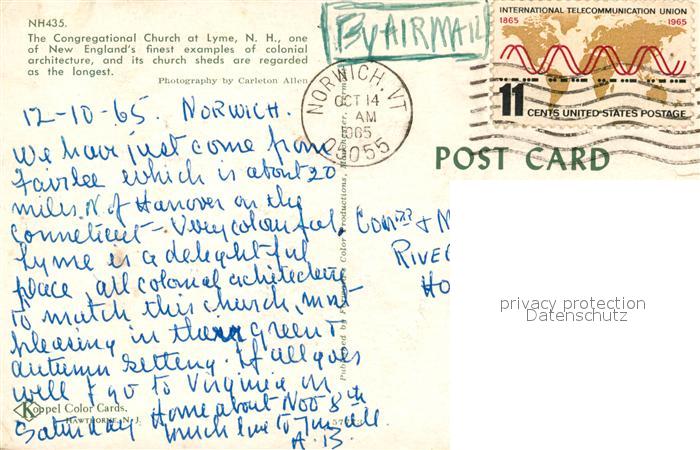 NH435.
The Congregational Church at Lyme, N. H., one
of New England's finest examples of colonial
architecture, and its church sheds are regarded
as the longest.
Photography by Carleton Allen
By AIRMAIL
INTERNATIONAL TELECOMMUNICATION UNION
1865 1965
11 CENTS UNITED STATES POSTAGE
NORWICH, VT
OCT 14
AM
1965
05055
POST CARD
12-10-65. NORWICH.
We have just come from
Fairlee which is about 20
miles N of Hanover on the
Conneticut - Very colourful.
Lyme is a delightful
place, all colonial achitecture
to match this church, most
pleasing in their green &
autumn setting. If all goes
well I go to Virginia on
Saturday Home about Nov 8th
much love to you all.
A. B.
Comdr & M
RIVE
HO
Published by Color Productions,
Koppel Color Cards,
HAWTHORNE, N. J.
privacy protection
Datenschutz